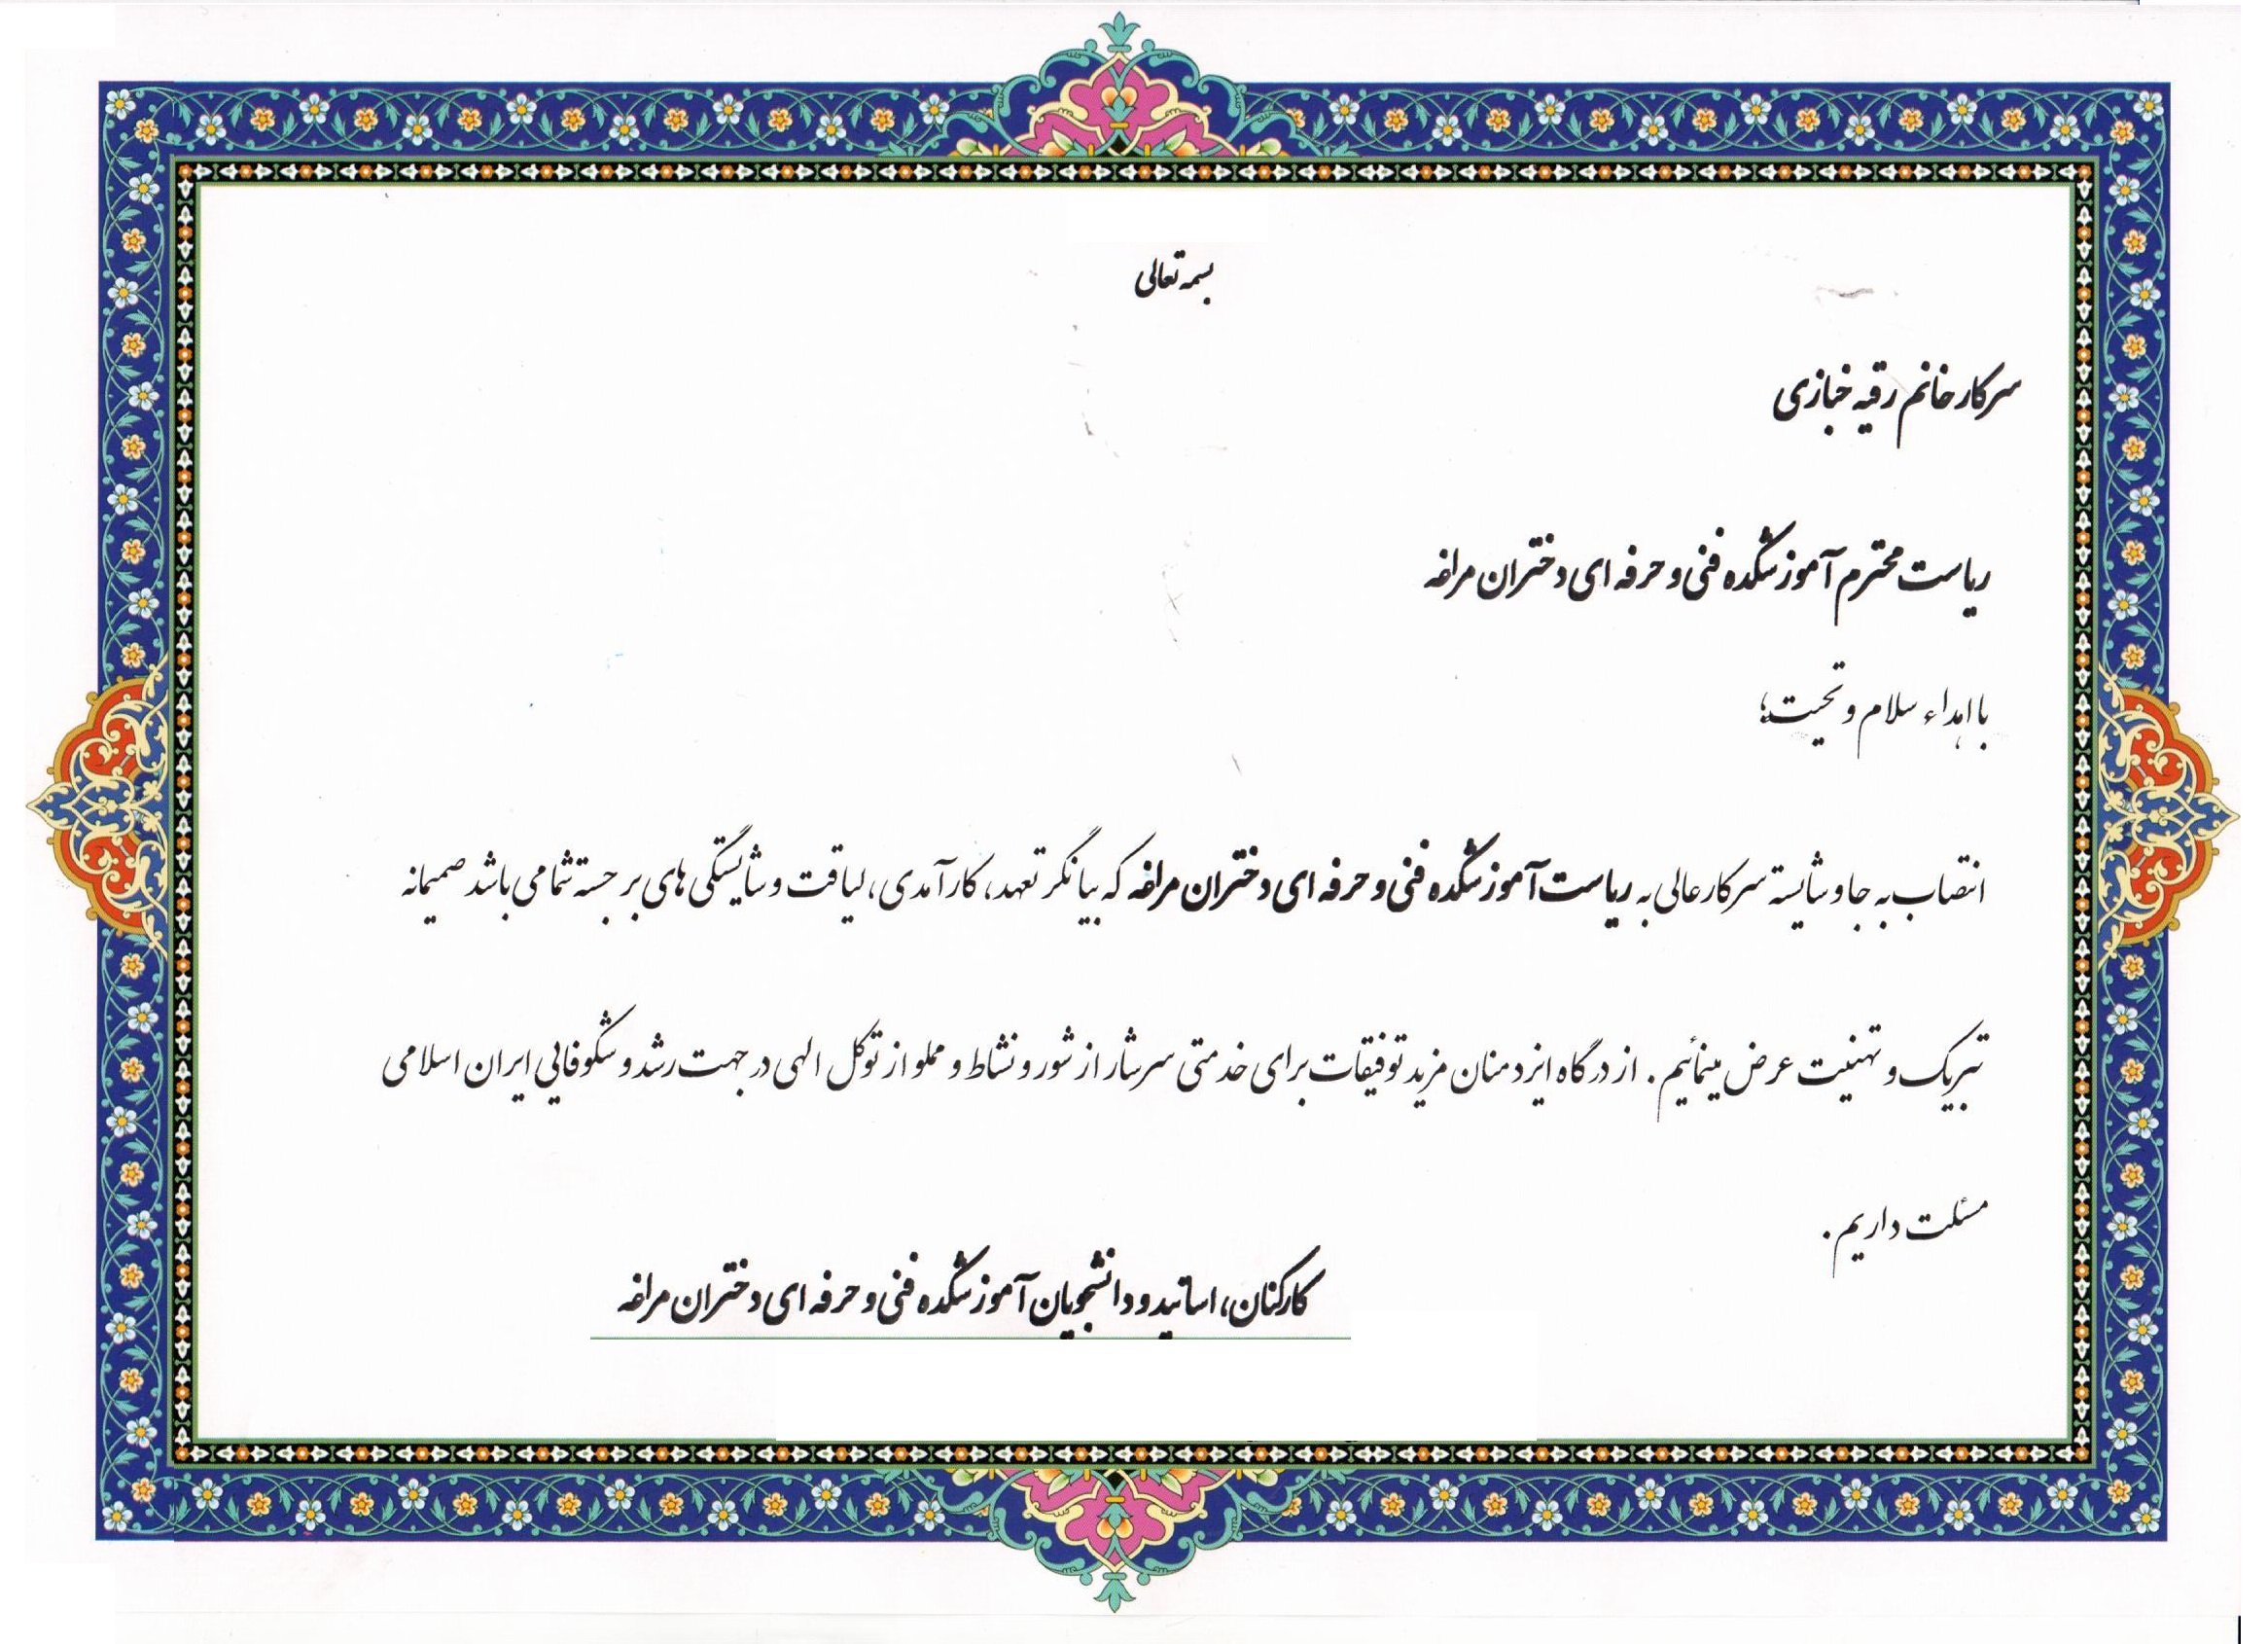 بسمه تعالی
سرکار خانم رقیه خبازی
ریاست محترم آموزشکده فنی و حرفه ای دختران مراغه
با اهداء سلام و تحیت؛
انتصاب به جا و شایسته سرکار عالی به ریاست آموزشکده فنی و حرفه ای دختران مراغه که بیانگر تعهد، کارآمدی، لیاقت و شایستگی های برجسته شما می باشد صمیمانه
تبریک و تهنیت عرض مینمائیم. از درگاه ایزد منان مزید توفیقات برای خدمتی سرشار از شور و نشاط و مملو از توکل الهی در جهت رشد و شکوفایی ایران اسلامی
مسئلت داریم.
کارکنان، اساتید و دانشجویان آموزشکده فنی و حرفه ای دختران مراغه